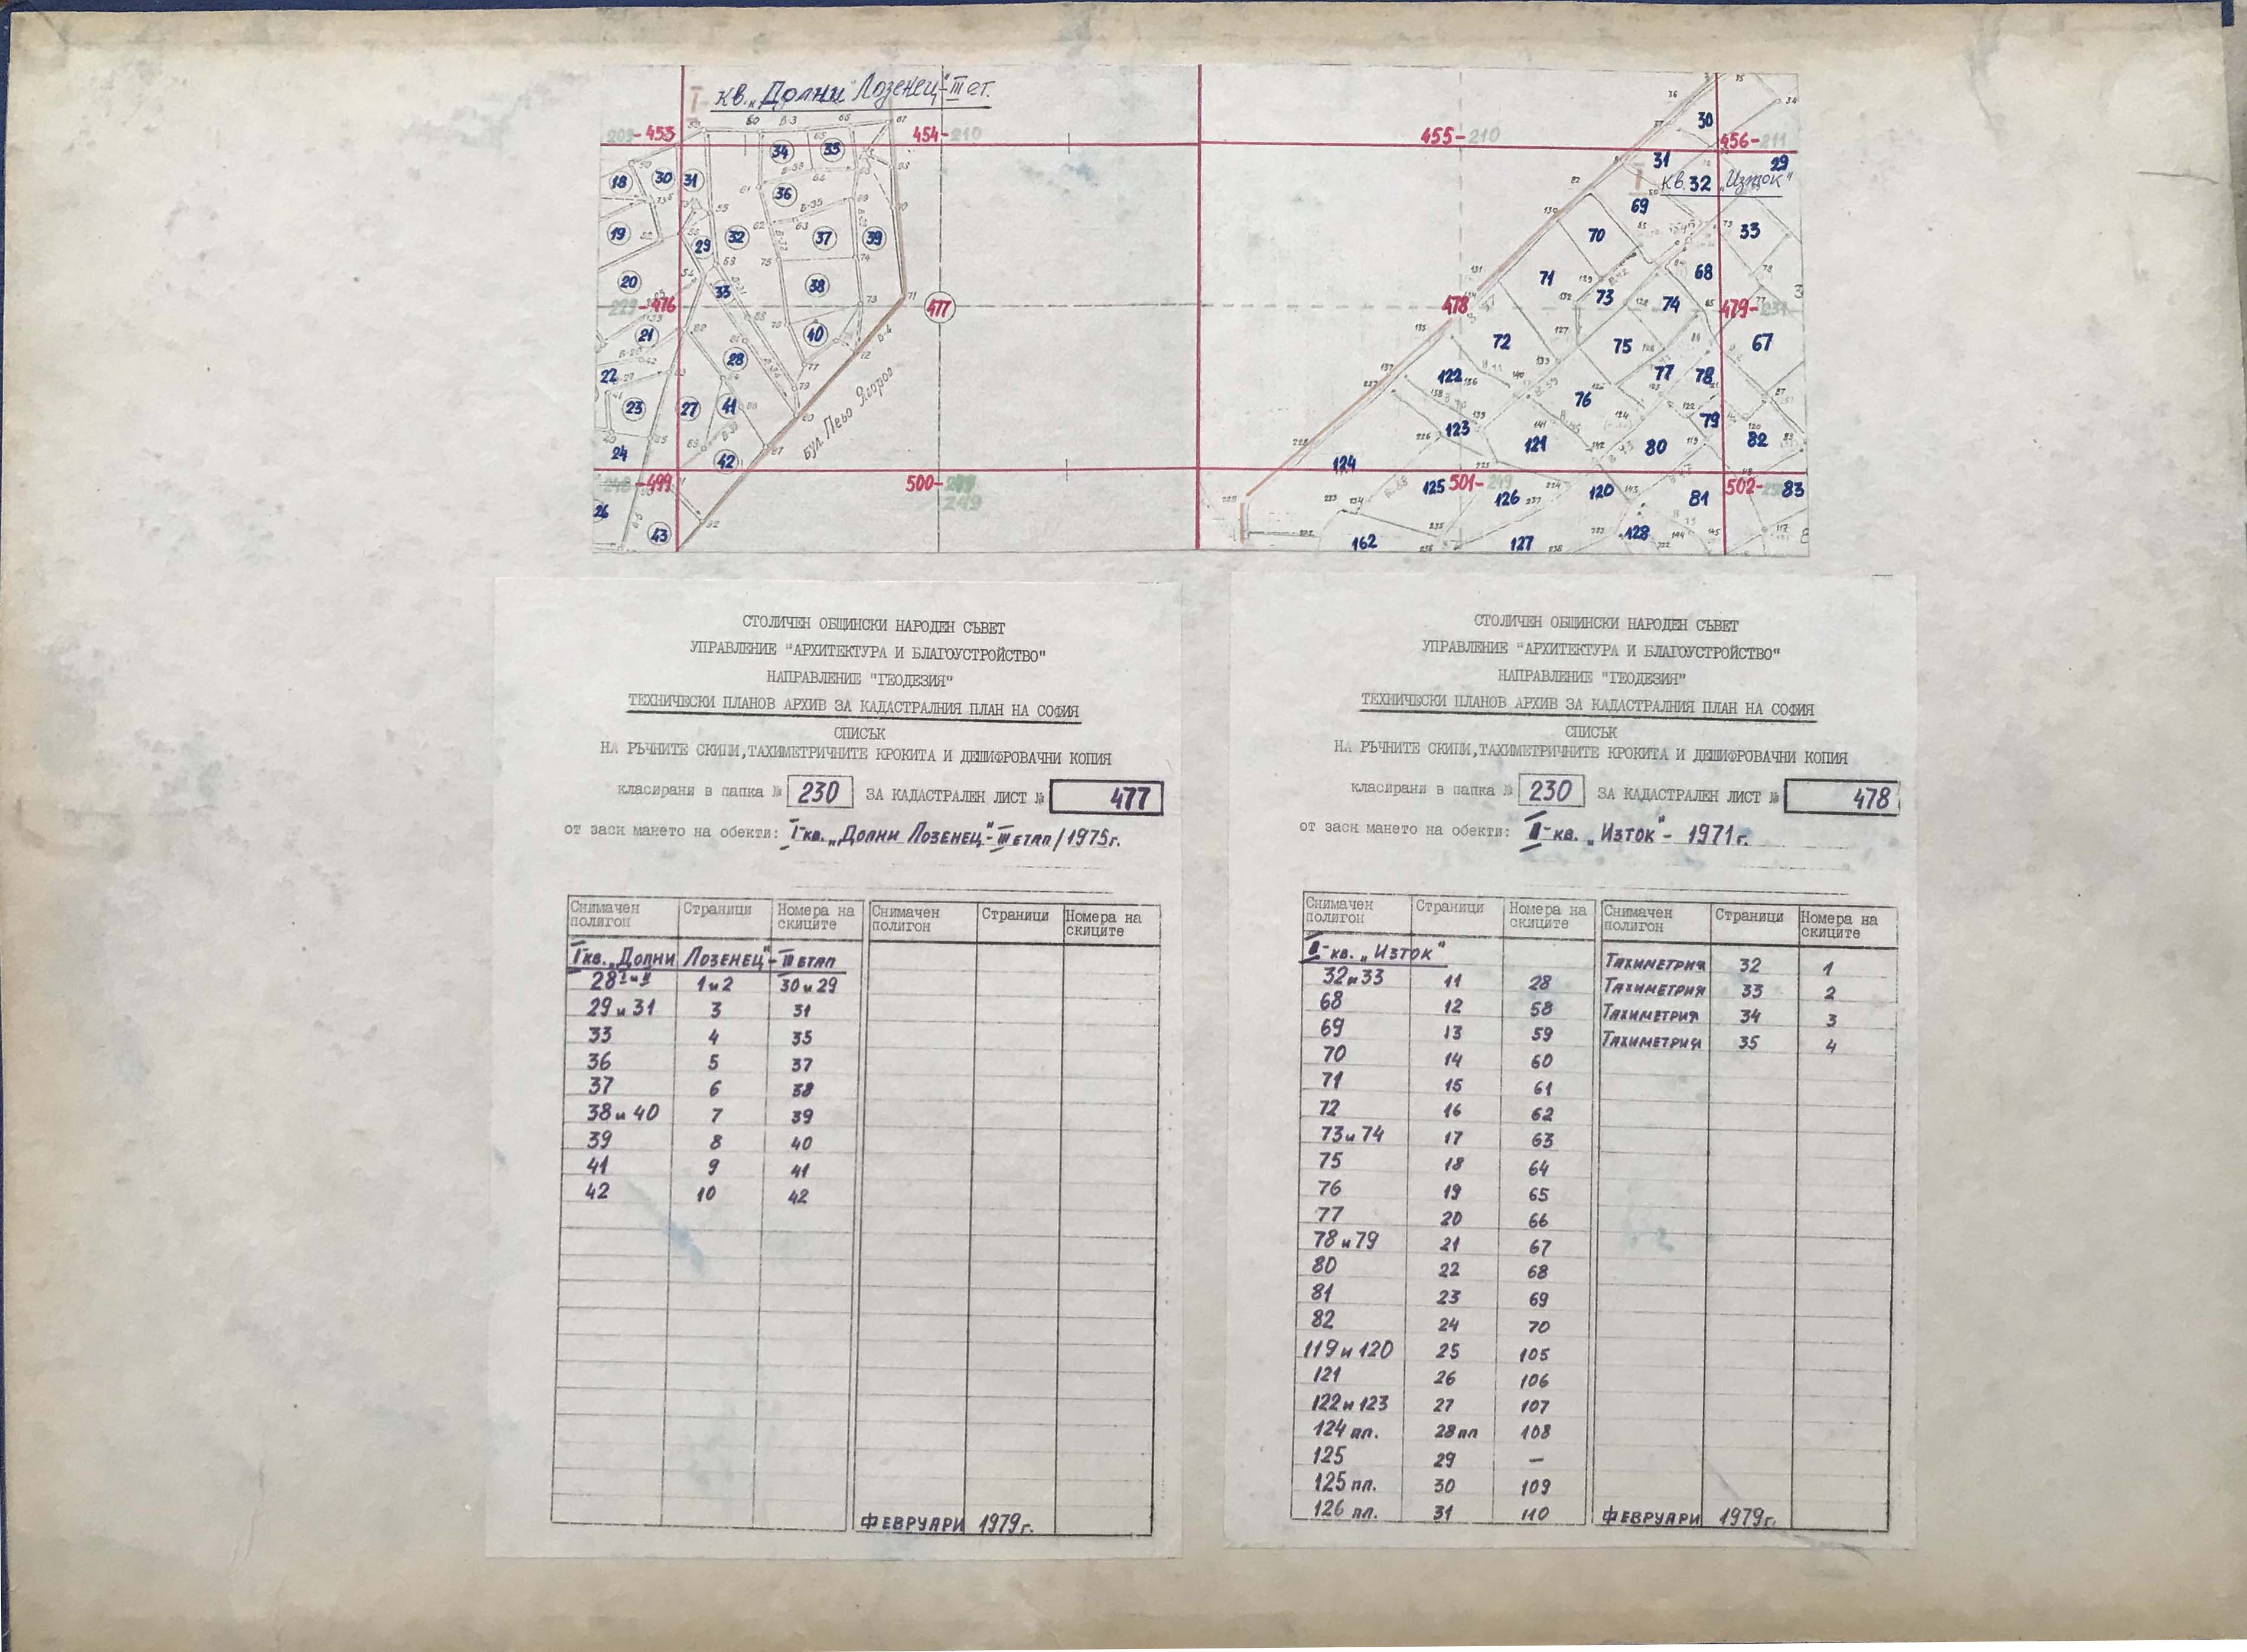 кв. „Долни Лозенец"-III ет.
209-453
454-210
455-210
456-211
30
31
29
кв. 32 „Изток"
18
30
31
34
35
36
69
19
29
32
37
39
70
33
20
33
38
71
73
74
68
229-476
477
478
479-231
21
28
40
72
75
67
22
122
77
78
23
27
41
76
79
бул Пейо Яворов
24
42
123
121
80
82
124
248-499
500-249
249
125
501-249
126
120
81
502-
83
26
43
162
127
128
СТОЛИЧЕН ОБЩИНСКИ НАРОДЕН СЪВЕТ
УПРАВЛЕНИЕ "АРХИТЕКТУРА И БЛАГОУСТРОЙСТВО"
НАПРАВЛЕНИЕ "ГЕОДЕЗИЯ"
ТЕХНИЧЕСКИ ПЛАНОВ АРХИВ ЗА КАДАСТРАЛНИЯ ПЛАН НА СОФИЯ
СПИСЪК
НА РЪЧНИТЕ СКИЦИ, ТАХИМЕТРИЧНИТЕ КРОКИТА И ДЕШИФРОВАЧНИ КОПИЯ
класирани в папка № 230 ЗА КАДАСТРАЛЕН ЛИСТ № 477
от засн мането на обекти: I-кв. „Долни Лозенец"-III етап/1975г.
Снимачен полигон Страници Номера на скиците Снимачен полигон Страници Номера на скиците
I кв. „Долни Лозенец"-III етап
28 I и II 1 и 2 30 и 29
29 и 31 3 31
33 4 35
36 5 37
37 6 38
38 и 40 7 39
39 8 40
41 9 41
42 10 42
ФЕВРУАРИ 1979г.
СТОЛИЧЕН ОБЩИНСКИ НАРОДЕН СЪВЕТ
УПРАВЛЕНИЕ "АРХИТЕКТУРА И БЛАГОУСТРОЙСТВО"
НАПРАВЛЕНИЕ "ГЕОДЕЗИЯ"
ТЕХНИЧЕСКИ ПЛАНОВ АРХИВ ЗА КАДАСТРАЛНИЯ ПЛАН НА СОФИЯ
СПИСЪК
НА РЪЧНИТЕ СКИЦИ, ТАХИМЕТРИЧНИТЕ КРОКИТА И ДЕШИФРОВАЧНИ КОПИЯ
класирани в папка № 230 ЗА КАДАСТРАЛЕН ЛИСТ № 478
от засн мането на обекти: II-кв. „Изток" - 1971г.
Снимачен полигон Страници Номера на скиците Снимачен полигон Страници Номера на скиците
II-кв. „Изток" Тахиметрия 32 1
32 и 33 11 28 Тахиметрия 33 2
68 12 58 Тахиметрия 34 3
69 13 59 Тахиметрия 35 4
70 14 60
71 15 61
72 16 62
73 и 74 17 63
75 18 64
76 19 65
77 20 66
78 и 79 21 67
80 22 68
81 23 69
82 24 70
119 и 120 25 105
121 26 106
122 и 123 27 107
124 пл. 28 пл 108
125 29 –
125 пл. 30 109
126 пл. 31 110
ФЕВРУАРИ 1979г.